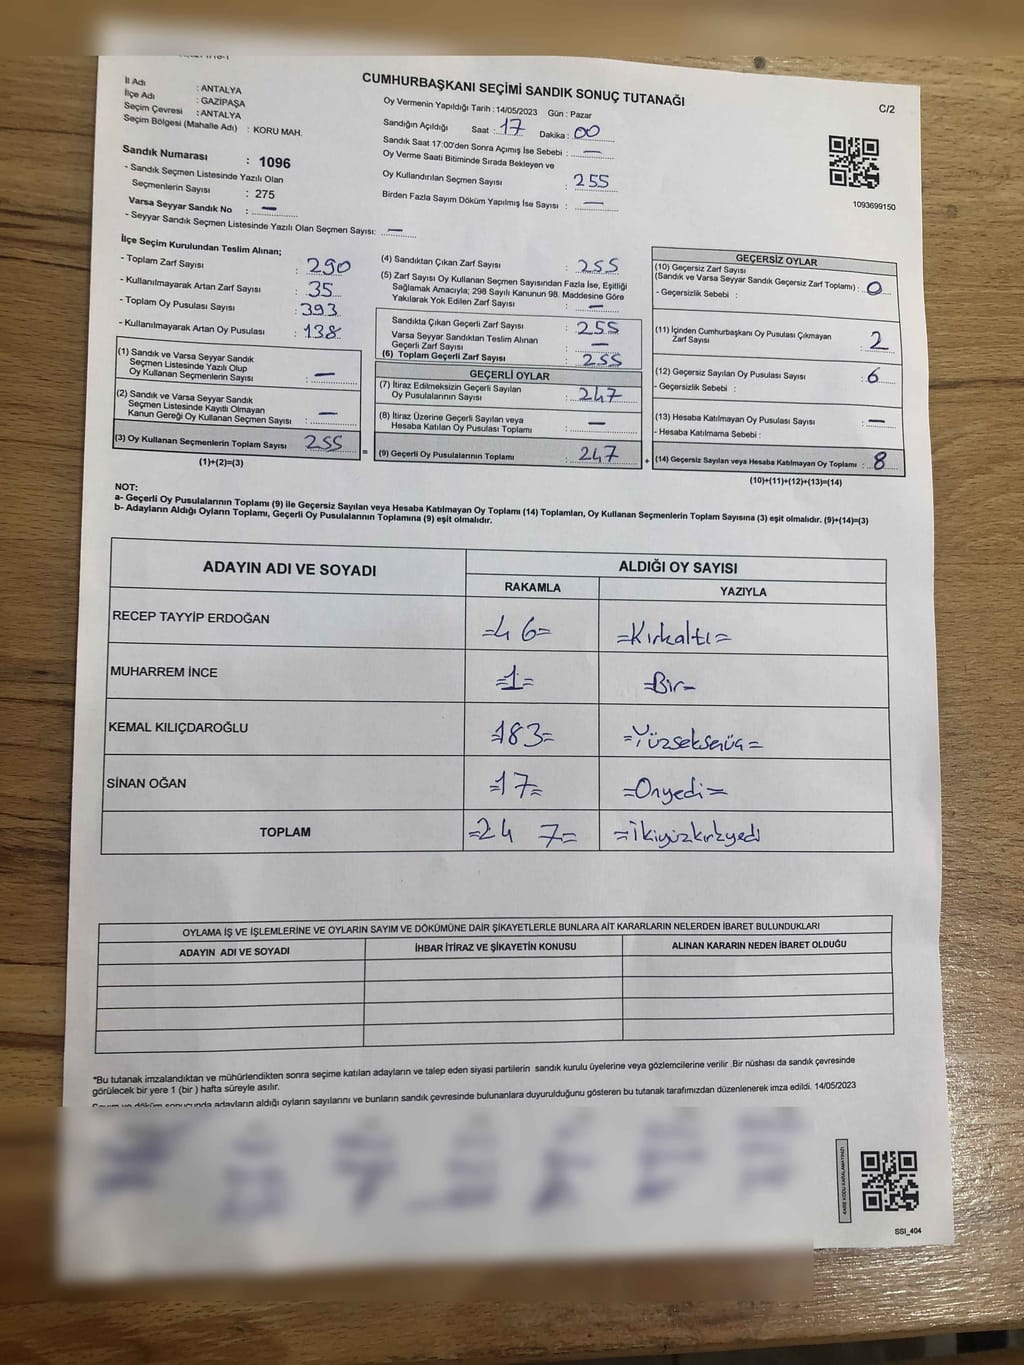 CUMHURBAŞKANI SEÇİMİ SANDIK SONUÇ TUTANAĞI
C/2
İl Adı : ANTALYA
İlçe Adı : GAZİPAŞA
Seçim Çevresi : ANTALYA
Seçim Bölgesi (Mahalle Adı) : KORU MAH.
Sandık Numarası : 1096
- Sandık Seçmen Listesinde Yazılı Olan
Seçmenlerin Sayısı : 275
Varsa Seyyar Sandık No : —
- Seyyar Sandık Seçmen Listesinde Yazılı Olan Seçmen Sayısı: —
Oy Vermenin Yapıldığı Tarih : 14/05/2023 Gün : Pazar
Sandığın Açıldığı Saat : 17 Dakika : 00
Sandık Saat 17:00'den Sonra Açımış İse Sebebi : —
Oy Verme Saati Bitiminde Sırada Bekleyen ve
Oy Kullandırılan Seçmen Sayısı : 255
Birden Fazla Sayım Döküm Yapılmış İse Sayısı : —
1093699150
İlçe Seçim Kurulundan Teslim Alınan;
- Toplam Zarf Sayısı : 290
- Kullanılmayarak Artan Zarf Sayısı : 35
- Toplam Oy Pusulası Sayısı : 393
- Kullanılmayarak Artan Oy Pusulası : 138
(1) Sandık ve Varsa Seyyar Sandık
Seçmen Listesinde Yazılı Olup
Oy Kullanan Seçmenlerin Sayısı : —
(2) Sandık ve Varsa Seyyar Sandık
Seçmen Listesinde Kayıtlı Olmayan
Kanun Gereği Oy Kullanan Seçmen Sayısı : —
(3) Oy Kullanan Seçmenlerin Toplam Sayısı : 255
(1)+(2)=(3)
(4) Sandıktan Çıkan Zarf Sayısı : 255
(5) Zarf Sayısı Oy Kullanan Seçmen Sayısından Fazla İse, Eşitliği
Sağlamak Amacıyla; 298 Sayılı Kanunun 98. Maddesine Göre
Yakılarak Yok Edilen Zarf Sayısı : —
Sandıkta Çıkan Geçerli Zarf Sayısı : 255
Varsa Seyyar Sandıktan Teslim Alınan
Geçerli Zarf Sayısı : —
(6) Toplam Geçerli Zarf Sayısı : 255
=
GEÇERLİ OYLAR
(7) İtiraz Edilmeksizin Geçerli Sayılan
Oy Pusulalarının Sayısı : 247
(8) İtiraz Üzerine Geçerli Sayılan veya
Hesaba Katılan Oy Pusulası Toplamı : —
(9) Geçerli Oy Pusulalarının Toplamı : 247
+
GEÇERSİZ OYLAR
(10) Geçersiz Zarf Sayısı
(Sandık ve Varsa Seyyar Sandık Geçersiz Zarf Toplamı) : 0
- Geçersizlik Sebebi :
(11) İçinden Cumhurbaşkanı Oy Pusulası Çıkmayan
Zarf Sayısı : 2
(12) Geçersiz Sayılan Oy Pusulası Sayısı : 6
- Geçersizlik Sebebi :
(13) Hesaba Katılmayan Oy Pusulası Sayısı : —
- Hesaba Katılmama Sebebi :
(14) Geçersiz Sayılan veya Hesaba Katılmayan Oy Toplamı : 8
(10)+(11)+(12)+(13)=(14)
NOT:
a- Geçerli Oy Pusulalarının Toplamı (9) ile Geçersiz Sayılan veya Hesaba Katılmayan Oy Toplamı (14) Toplamları, Oy Kullanan Seçmenlerin Toplam Sayısına (3) eşit olmalıdır. (9)+(14)=(3)
b- Adayların Aldığı Oyların Toplamı, Geçerli Oy Pusulalarının Toplamına (9) eşit olmalıdır.
ADAYIN ADI VE SOYADI ALDIĞI OY SAYISI
RAKAMLA YAZIYLA
RECEP TAYYİP ERDOĞAN =46= =Kırkaltı=
MUHARREM İNCE =1= =Bir=
KEMAL KILIÇDAROĞLU =183= =Yüzseksenüç=
SİNAN OĞAN =17= =Onyedi=
TOPLAM =24 7= =İkiyüzkırkyedi
OYLAMA İŞ VE İŞLEMLERİNE VE OYLARIN SAYIM VE DÖKÜMÜNE DAİR ŞİKAYETLERLE BUNLARA AİT KARARLARIN NELERDEN İBARET BULUNDUKLARI
ADAYIN ADI VE SOYADI İHBAR İTİRAZ VE ŞİKAYETİN KONUSU ALINAN KARARIN NEDEN İBARET OLDUĞU
*Bu tutanak imzalandıktan ve mühürlendikten sonra seçime katılan adayların ve talep eden siyasi partilerin sandık kurulu üyelerine veya gözlemcilerine verilir .Bir nüshası da sandık çevresinde
görülecek bir yere 1 (bir ) hafta süreyle asılır.
Sayım ve döküm sonucunda adayların aldığı oyların sayılarını ve bunların sandık çevresinde bulunanlara duyurulduğunu gösteren bu tutanak tarafımızdan düzenlenerek imza edildi. 14/05/2023
KARE KODU KARALAMAYINIZ!
SSI_404